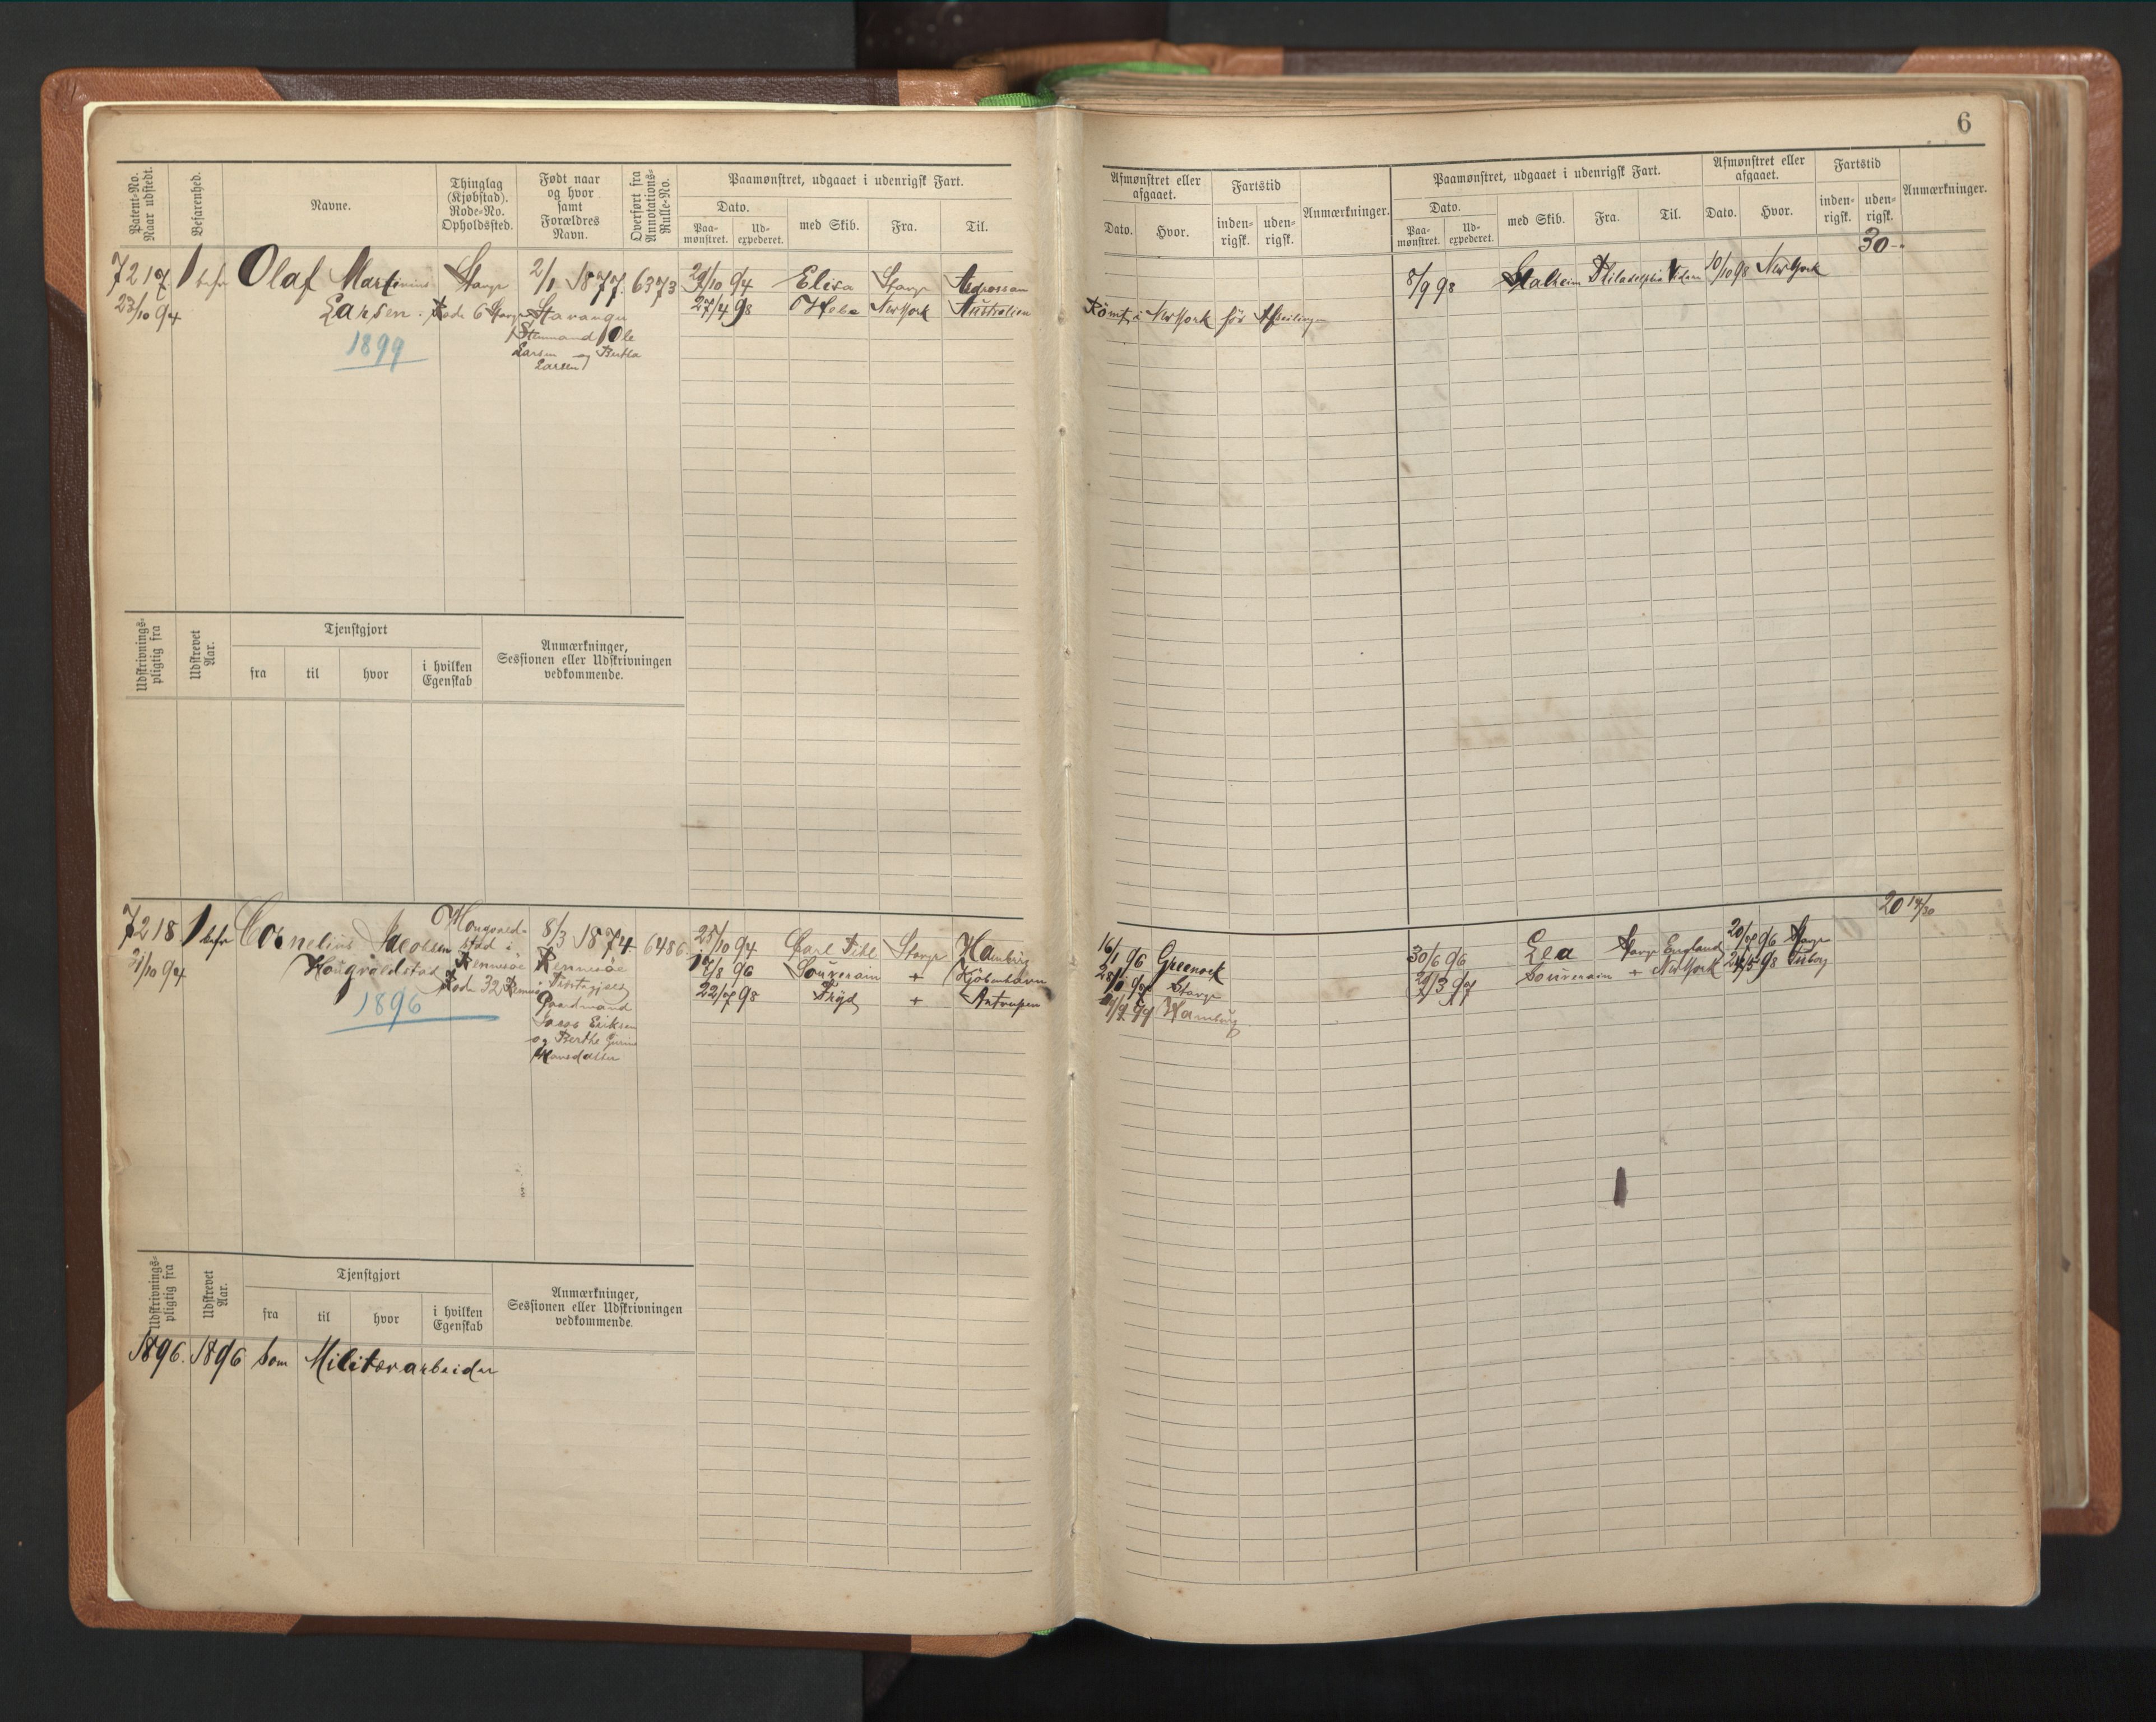 6
Patent-No. Naar udstedt.
Befarenhed.
Navne.
Thinglag (Kjøbstad). Rode-No. Opholdssted.
Født naar og hvor samt Forældres Navn.
Overført fra Annotations-Rulle-No.
Paamønstret, udgaaet i udenrigsk Fart.
Dato.
Paa-mønstret.
Ud-expederet.
med Skib.
Fra.
Til.
Afmønstret eller afgaaet.
Dato.
Hvor.
Fartstid
inden-rigsk.
uden-rigsk.
Anmærkninger.
Paamønstret, udgaaet i udenrigsk Fart.
Dato.
Paa-mønstret.
Ud-expederet.
med Skib.
Fra.
Til.
Afmønstret eller afgaaet.
Dato.
Hvor.
Fartstid
inden-rigsk.
uden-rigsk.
Anmærkninger.
30-.
7217 1 befr Olaf Martinius Stavgr 2/1 1877. 6373 29/10 94 Elisa Stavgr Ardrossan
23/10 94 Larsen. Rode 6 Stavgr Stavanger 27/4 98 Hebe NewYork Australien
1899
Larsen og Bertha
Larsen)
8/9 98 Stalheim Philadelphia 10/10 98 NewYork
Römt i NewYork før Afseilingen
Udskrivnings-pligtig fra
Udskrevet Aar.
Tjenstgjort
fra
til
hvor
i hvilken Egenskab
Anmærkninger, Sessionen eller Udskrivningen vedkommende.
20 14/30
7218. 1 befr Cornelius Jacobsen 8/3 1874. 6486. 25/10 94 Carl Pihl Stavgr Hamburg
/10 94 Hougvaldstad Rennesøe 17/8 96 Souverain + Kjøbenhavn
Rode 32 22/7 98 + Antverpen
1896
Gaardmand
Jacob Eriksen
og Berthe
16/1 96 Greenock
Stavgr
Hamburg
30/6 96 Lea Stavgr England 20/7 96 Stavgr
29/3 97 Souverain + NewYork
Udskrivnings-pligtig fra
Udskrevet Aar.
Tjenstgjort
fra
til
hvor
i hvilken Egenskab
Anmærkninger, Sessionen eller Udskrivningen vedkommende.
1896. 1896 som Militærarbeider